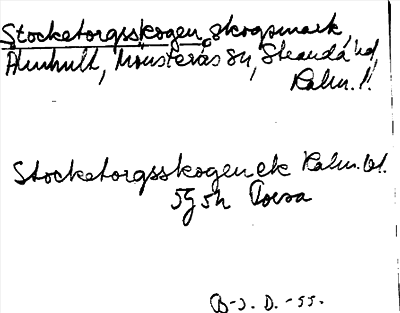 Stocketorgsskogen, skogsmark,
Älmhult, Mönsterås sn, Stranda hd,
Kalm. l.
Stocketorgsskogen ek Kalm. bl.
5G 5h Torsa
B-J. D. -55.